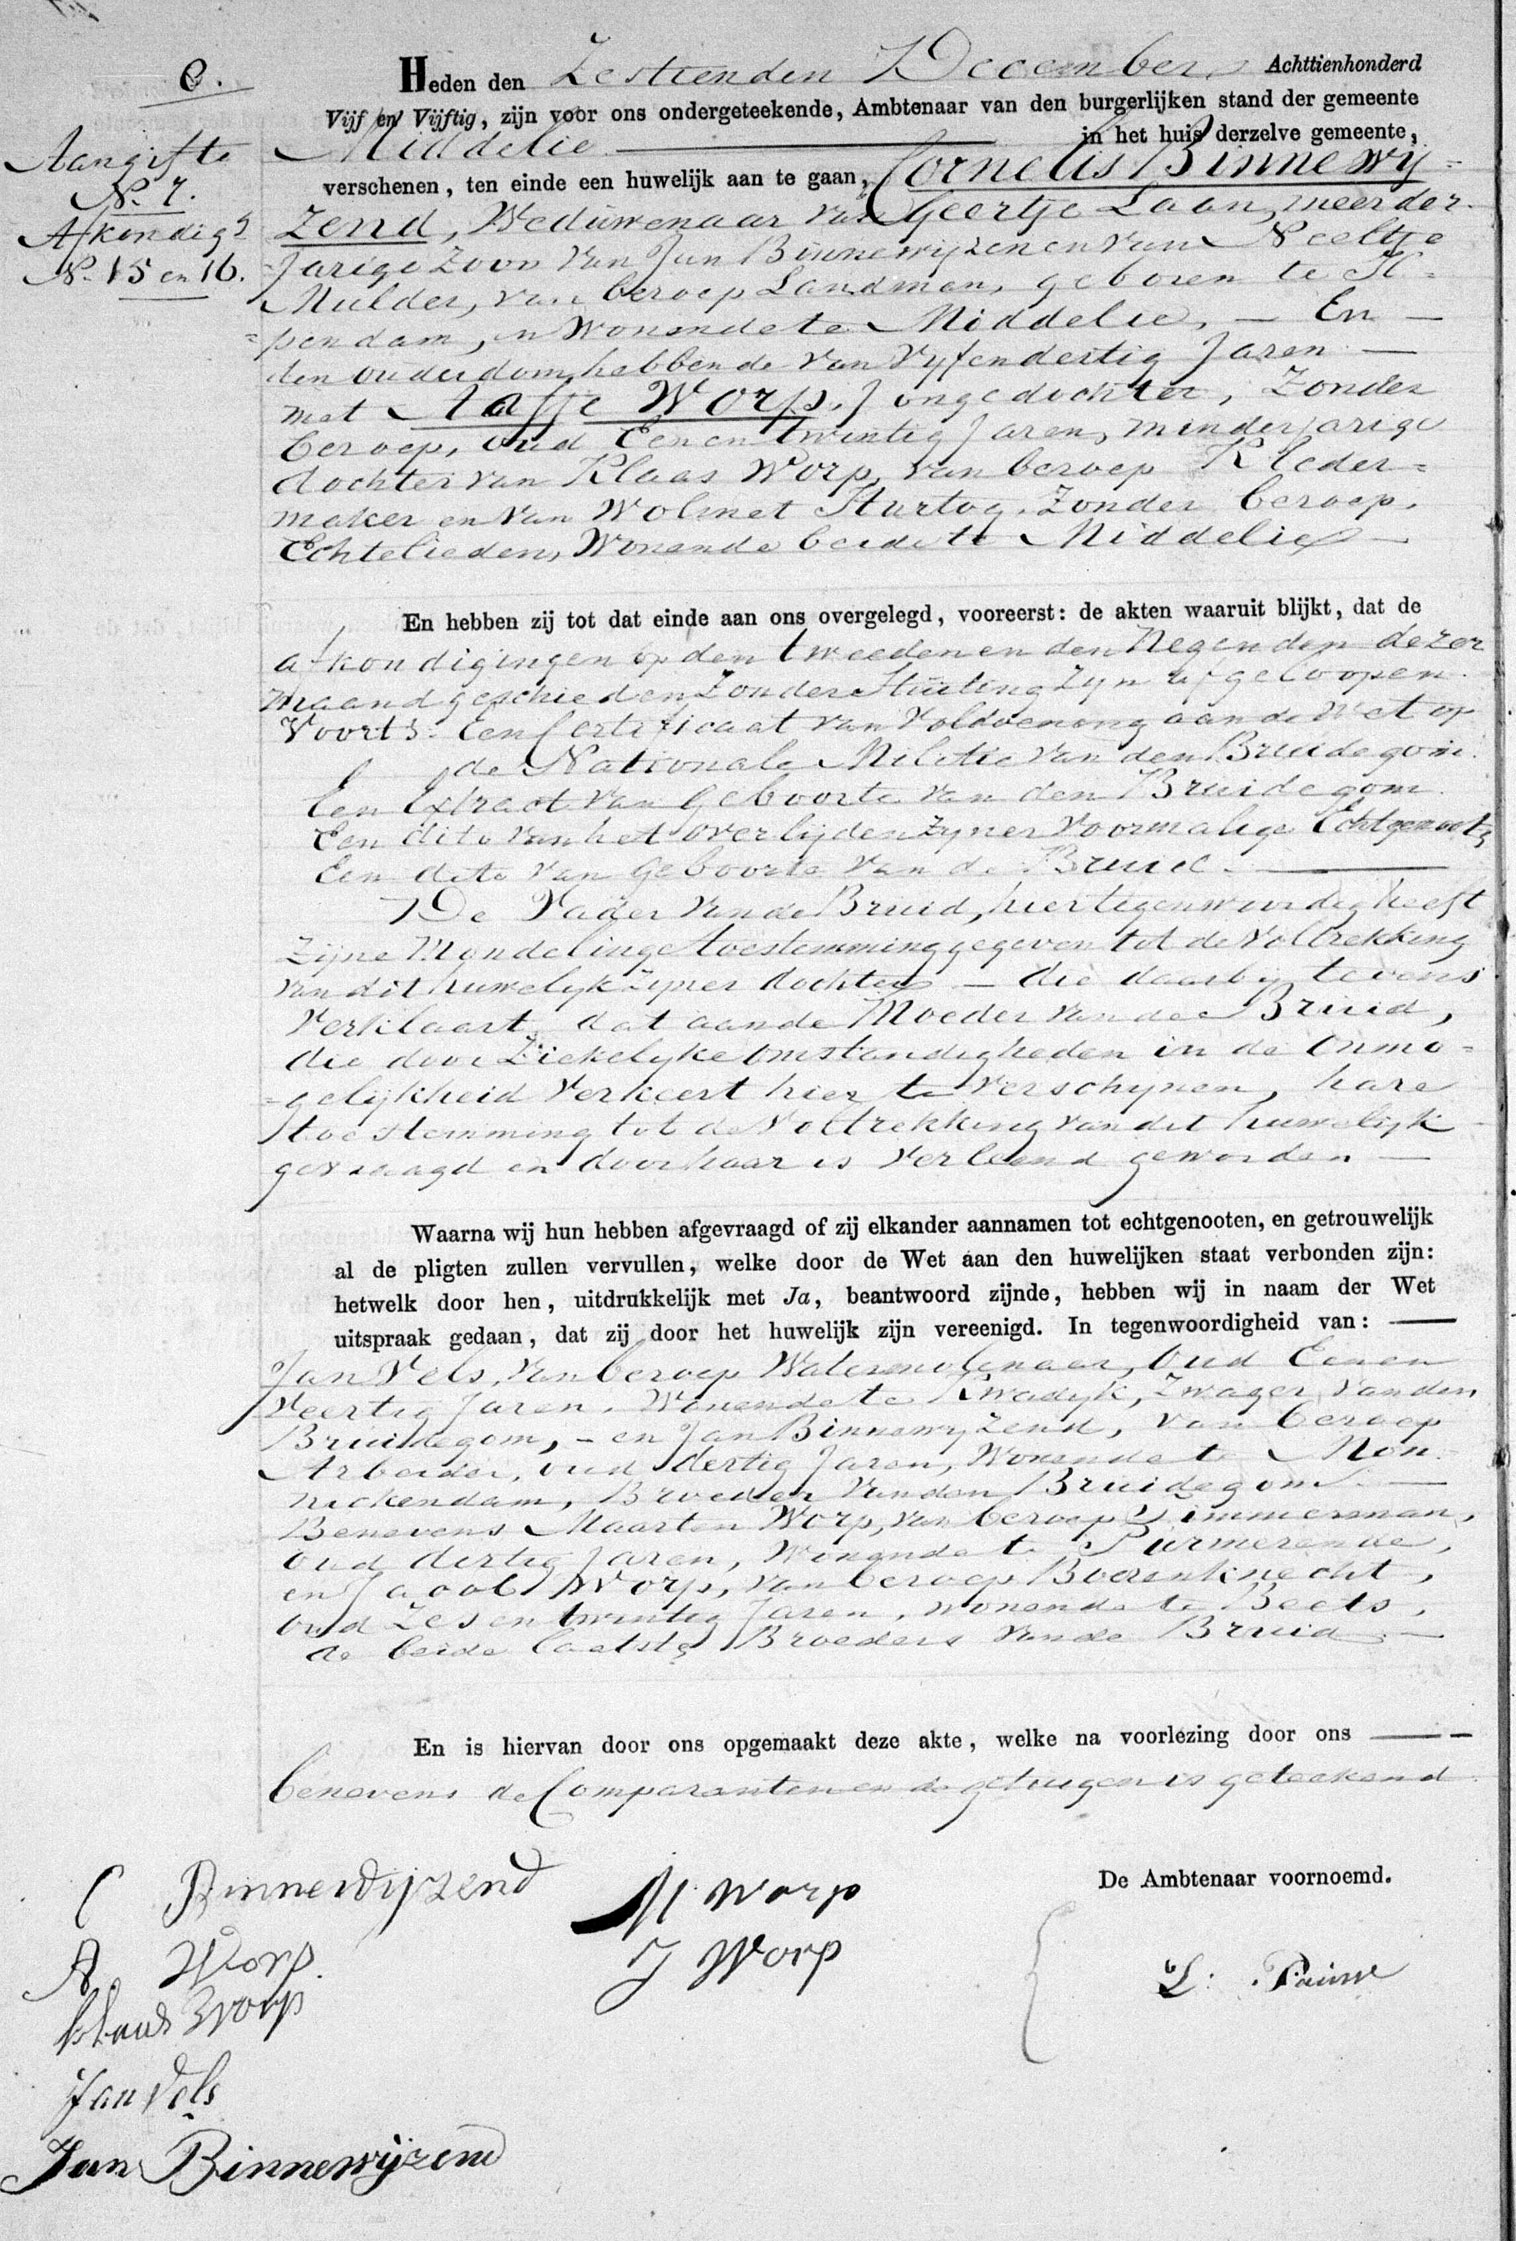 8.
Aangifte
No. 7.
Afkondigs
No. 15 en 16.
Heden den Zestienden December Achttienhonderd
Vijf en Vijftig, zijn voor ons ondergeteekende, Ambtenaar van den burgerlijken stand der gemeente
Middelie in het huis derzelve gemeente,
verschenen, ten einde een huwelijk aan te gaan, Cornelis Binnewij=
zend, Weduwenaar van Geertje Laan, meerder=
jarige Zoon van Jan Binnewijzen en van Neeltje
Mulder, van beroep Landman, geboren te
=pendam, en Wonende te Middelie, — En —
den ouderdom hebbende van Vijfendertig Jaren —
met Aafje Worp, Jongedochter, Zonder
beroep, oud Eenentwintig Jaren, minderjarige
dochter van Klaas Worp, van beroep Kleder=
maker en van Wolmet Hartog, Zonder beroep,
Echtelieden, Wonende beide te Middelie —
En hebben zij tot dat einde aan ons overgelegd, vooreerst: de akten waaruit blijkt, dat de
afkondigingen op den tweeden en den Negenden dezer
maand geschieden Zonder Stuiting Zijn afgeloopen.
Voorts: Een Certificaat van Voldoening aan de Wet op
de Nationale Militie van den Bruidegom.
Een Extract van Geboorte van den Bruidegom.
Een dito van het overlijden zijner voormalige Echtgenoote
Een dito van Geboorte van de Bruid. —
De Vader van de Bruid, hier tegenwoordig heeft
Zijne Mondelinge toestemming gegeven tot de Voltrekking
van dit huwelijk zijner dochter — die daarbij tevens
Verklaart, dat aan de Moeder van de Bruid,
die door Ziekelijke omstandigheden in de Onmo=
=gelijkheid Verkeert hier te Verschijnen, hare
toestemming tot de Voltrekking van dit huwelijk
gevraagd en door haar is Verleend geworden —
Waarna wij hun hebben afgevraagd of zij elkander aannamen tot echtgenooten, en getrouwelijk
al de pligten zullen vervullen, welke door de Wet aan den huwelijken staat verbonden zijn:
hetwelk door hen, uitdrukkelijk met Ja, beantwoord zijnde, hebben wij in naam der Wet
uitspraak gedaan, dat zij door het huwelijk zijn vereenigd. In tegenwoordigheid van: —
Jan Vels, van beroep Watermolenaar, Oud Eenen
Veertig Jaren, Wonende te Kwadijk, Zwager van den
Bruidegom, – en Jan Binnewijzend, van beroep
Arbeider, oud dertig Jaren, Wonende te Mon=
nickendam, Broeder van den Bruidegom. —
Benevens Maarten Worp, van beroep Timmerman,
Oud dertig Jaren, Wonende te Purmerende,
en Jacob Worp, van beroep Boerenknecht,
oud Zesentwintig Jaren, wonende te Beets,
de beide laatste Broeders van de Bruid —
En is hiervan door ons opgemaakt deze akte, welke na voorlezing door ons —
benevens de Comparanten en de getuigen is geteekend
C Binnewijzend
M Worp
De Ambtenaar voornoemd.
A Worp.
J Worp
L. Pauw
Klaas Worp
Jan Vels
Jan Binnewijzend